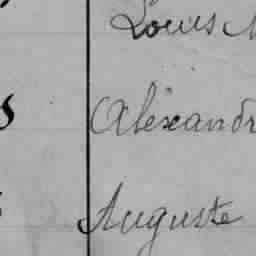 Louis
Alexandr
Auguste